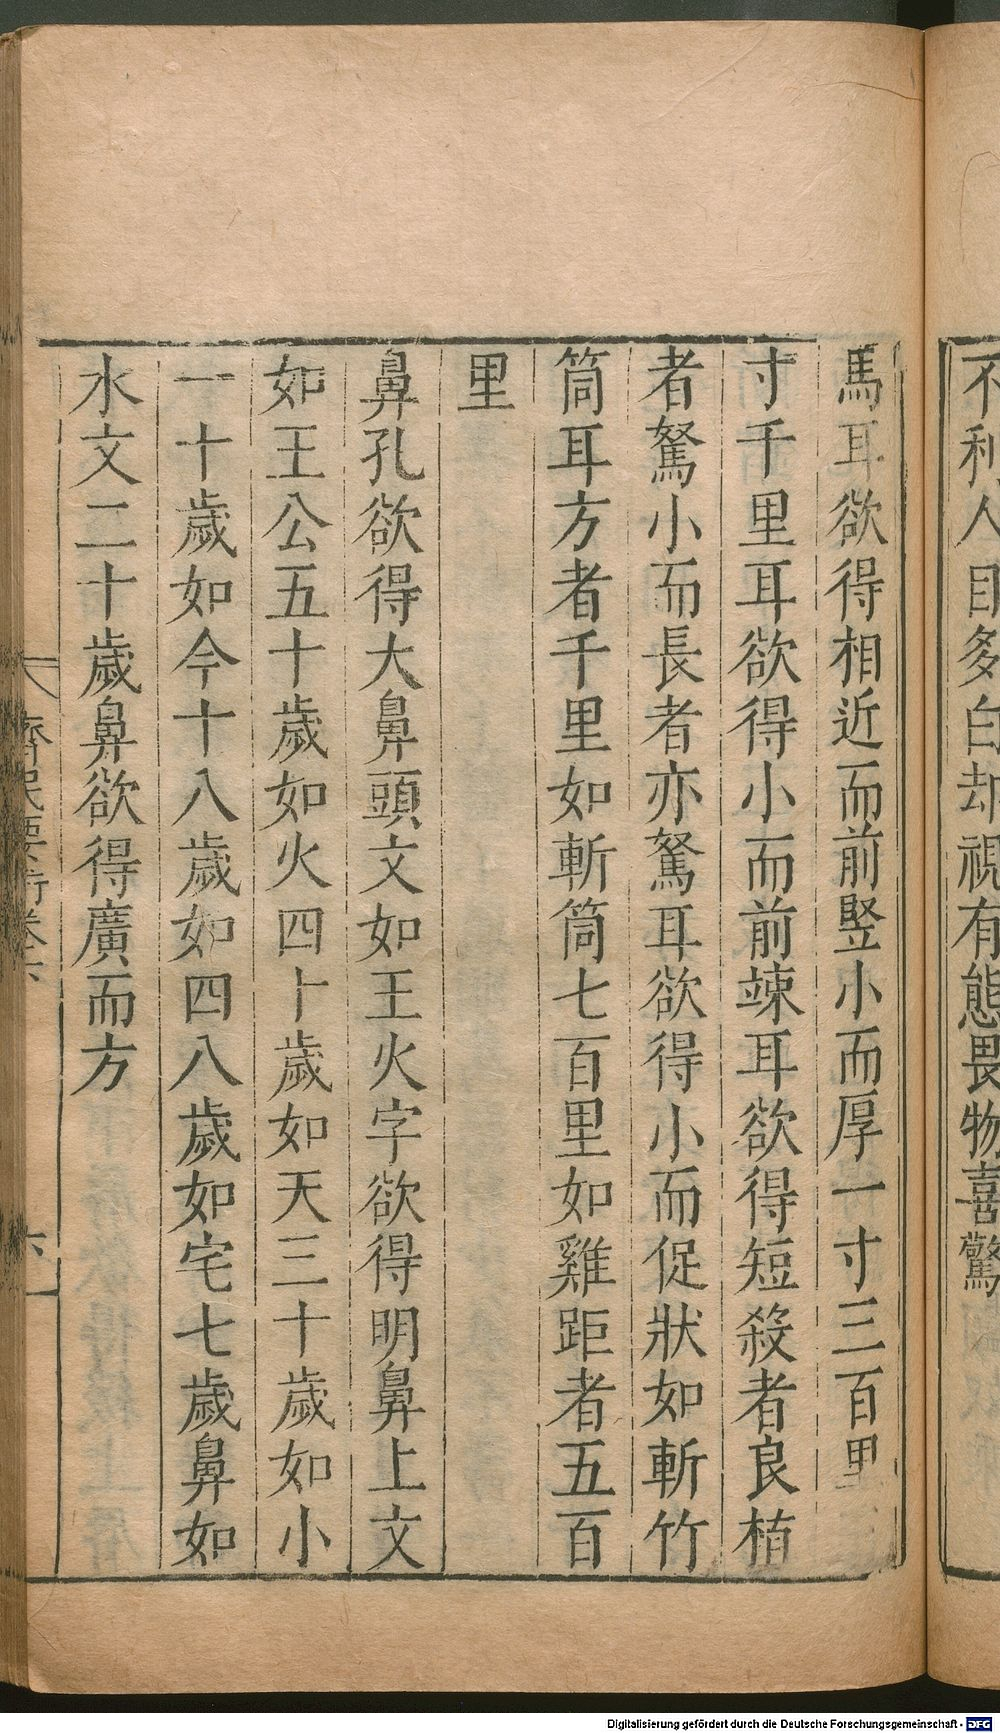 不利人目多白却視有態畏物喜驚
馬耳欲得相近而前竪小而厚一寸三百里
寸千里耳欲得小而前竦耳欲得短殺者良植
者駑小而長者亦駑耳欲得小而促狀如斬竹
筒耳方者千里如斬筒七百里如雞距者五百
里
鼻孔欲得大鼻頭文如王火字欲得明鼻上文
如王公五十歲如火四十歲如天三十歲如小
一十歲如今十八歲如四八歲如宅七歲鼻如
水文二十歲鼻欲得廣而方
齊民要術卷六
六
Digitalisierung gefördert durch die Deutsche Forschungsgemeinschaft - DFG